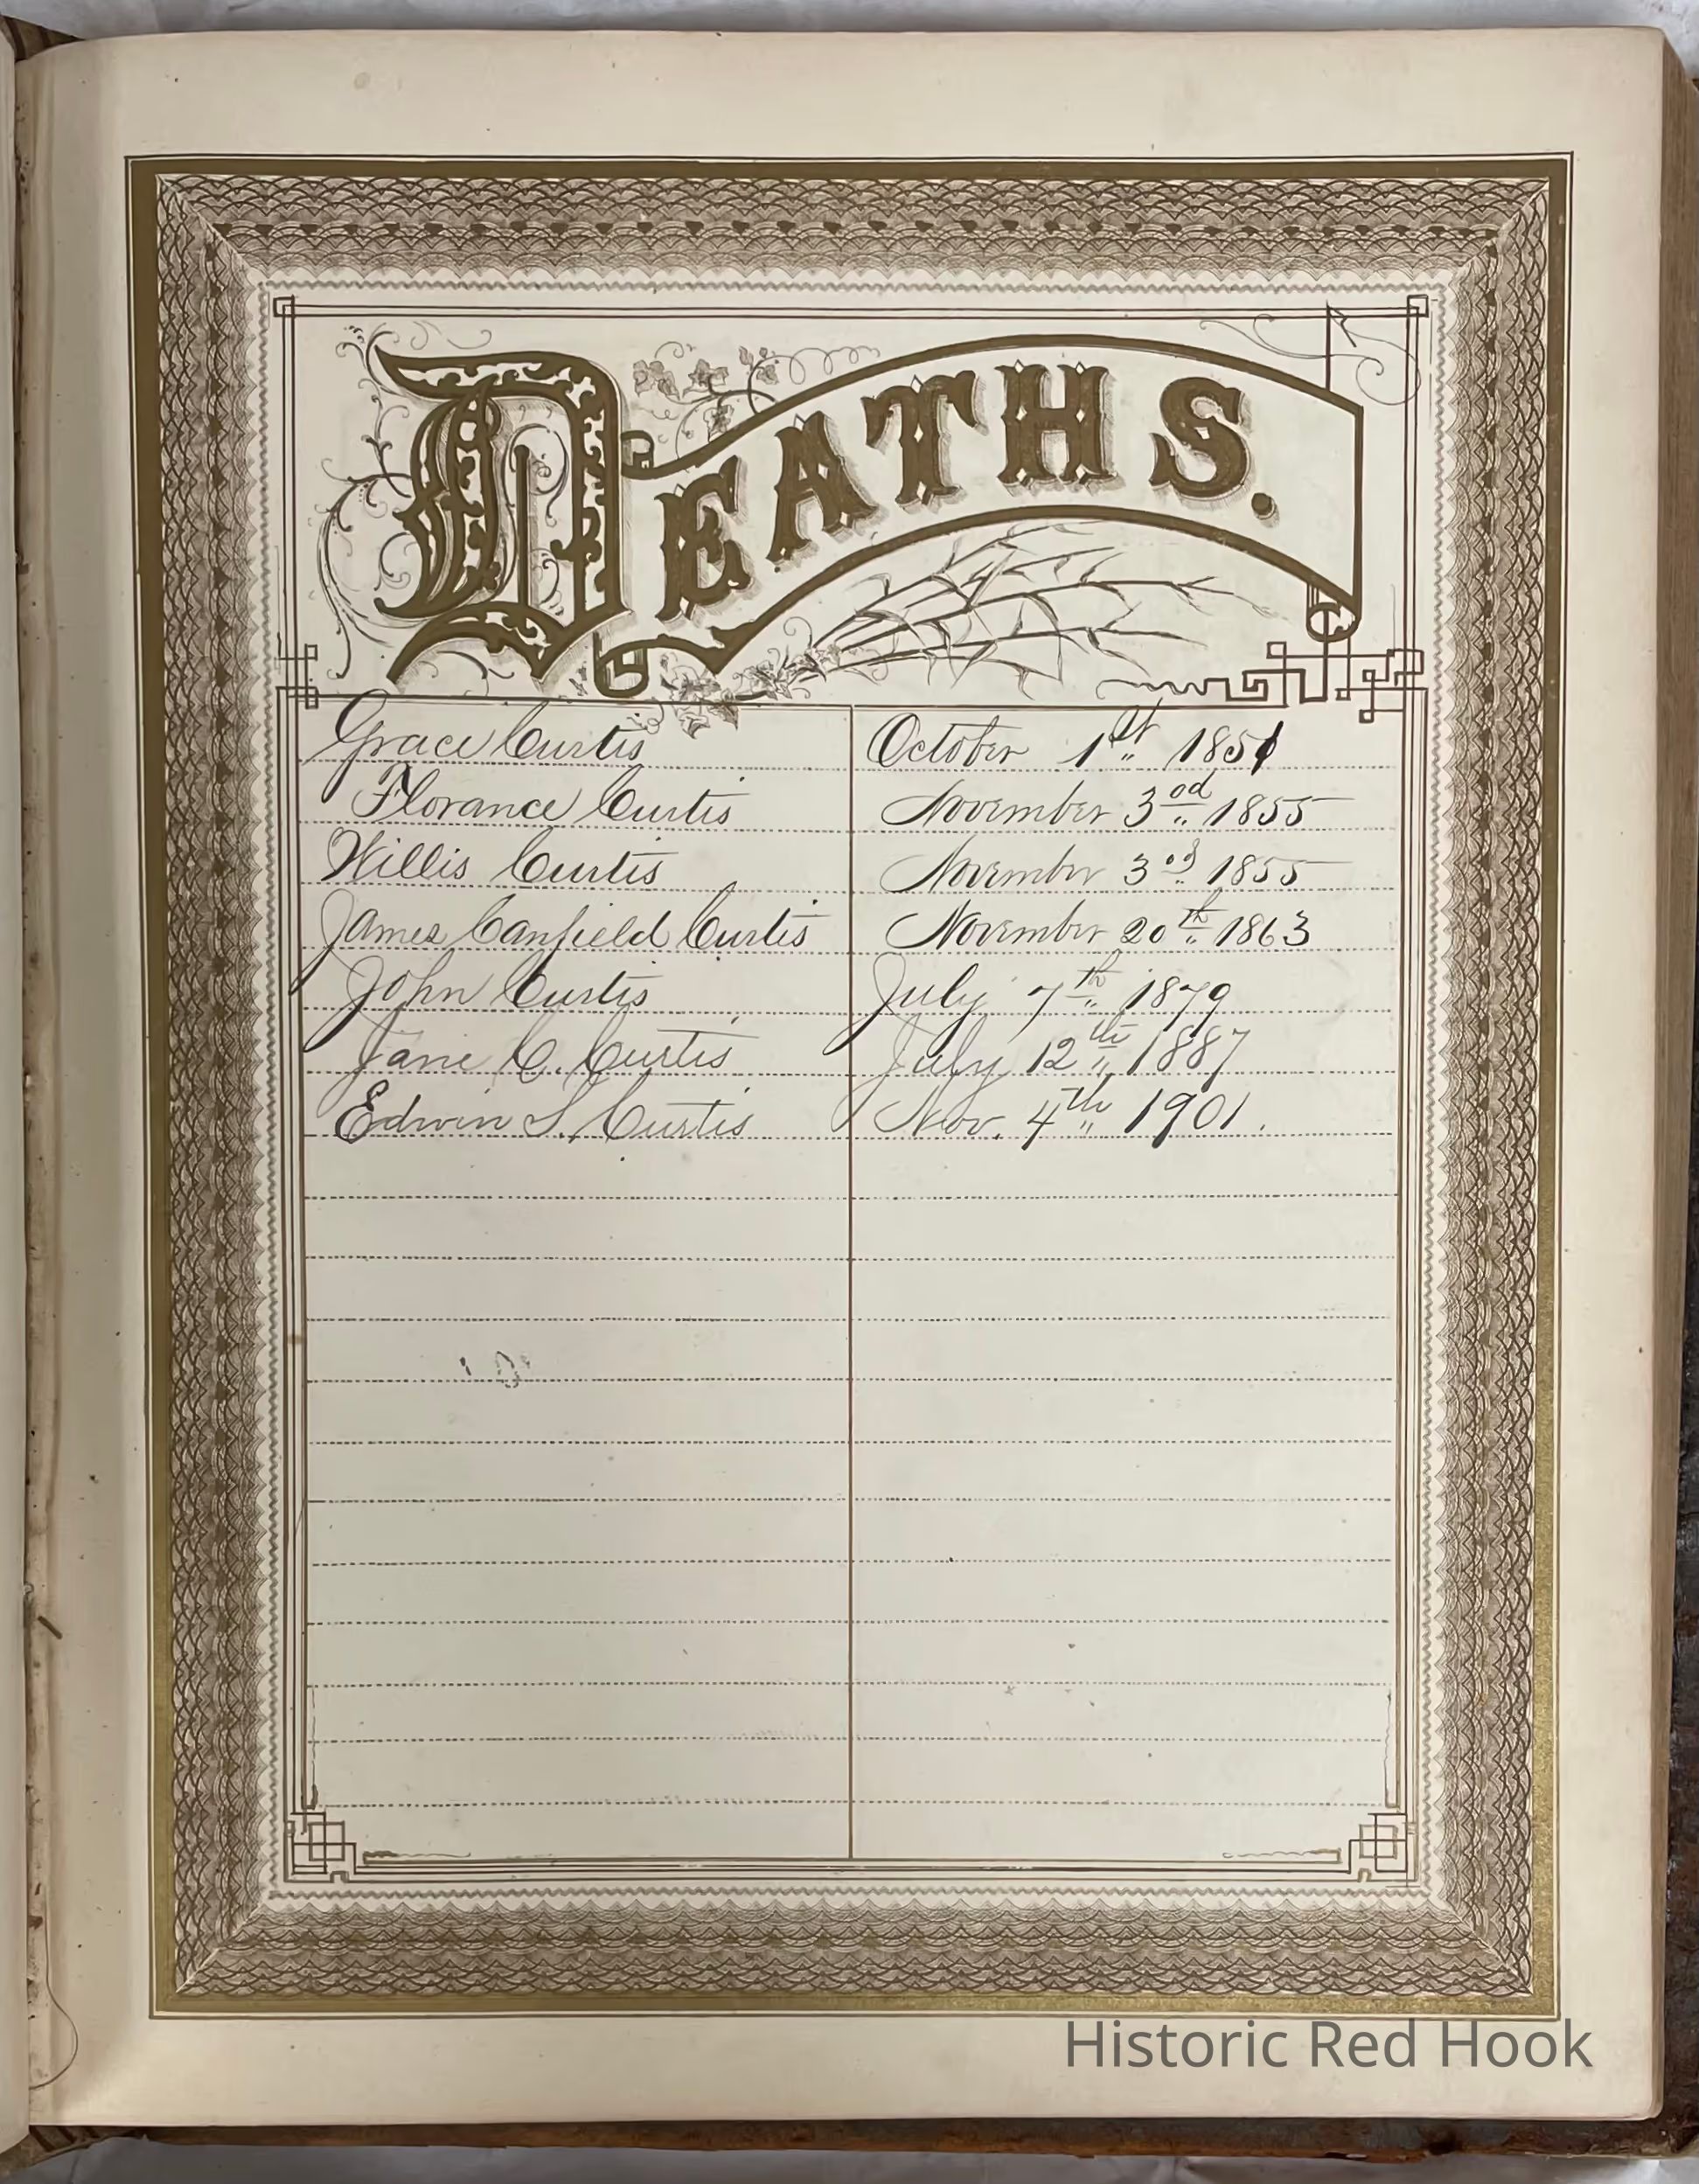 DEATHS.
Grace Curtis October 1st 1851
Florance Curtis November 3od 1855
Willis Curtis November 3od 1855
James Canfield Curtis November 20th 1863
John Curtis July 7th 1879
Jane C. Curtis July 12th 1887
Edwin S. Curtis Nov. 4th 1901.
Historic Red Hook